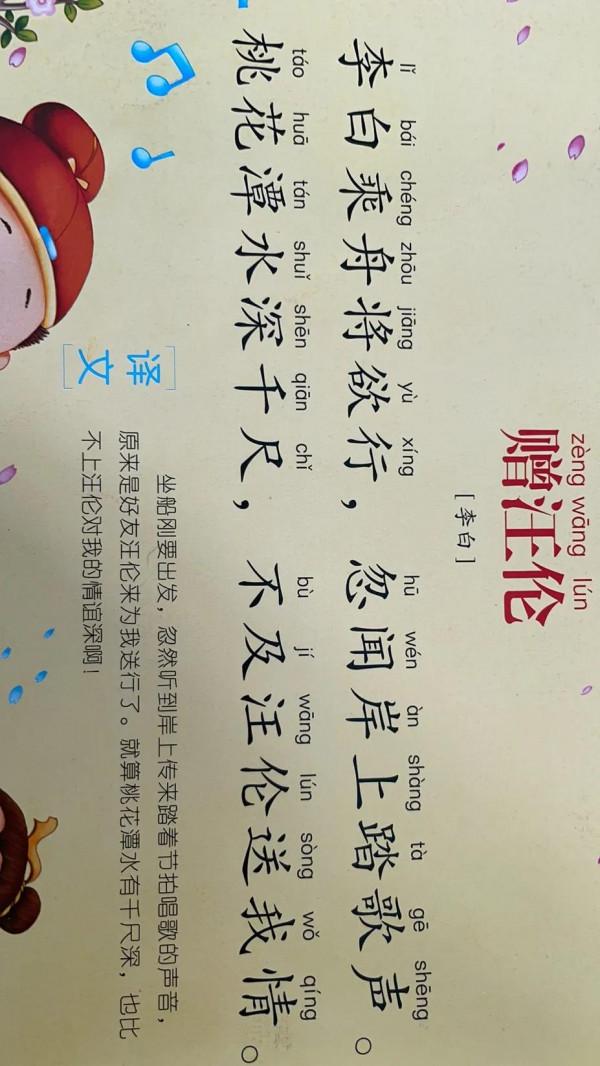 zèng wāng lún
赠汪伦
[李白]
lǐ bái chéng zhōu jiāng yù xíng hū wén àn shàng tà gē shēng
李白乘舟将欲行，忽闻岸上踏歌声。
táo huā tán shuǐ shēn qiān chǐ bù jí wāng lún sòng wǒ qíng
桃花潭水深千尺，不及汪伦送我情。
[译文]
坐船刚要出发，忽然听到岸上传来踏着节拍唱歌的声音，
原来是好友汪伦来为我送行了。就算桃花潭水有千尺深，也比
不上汪伦对我的情谊深啊！